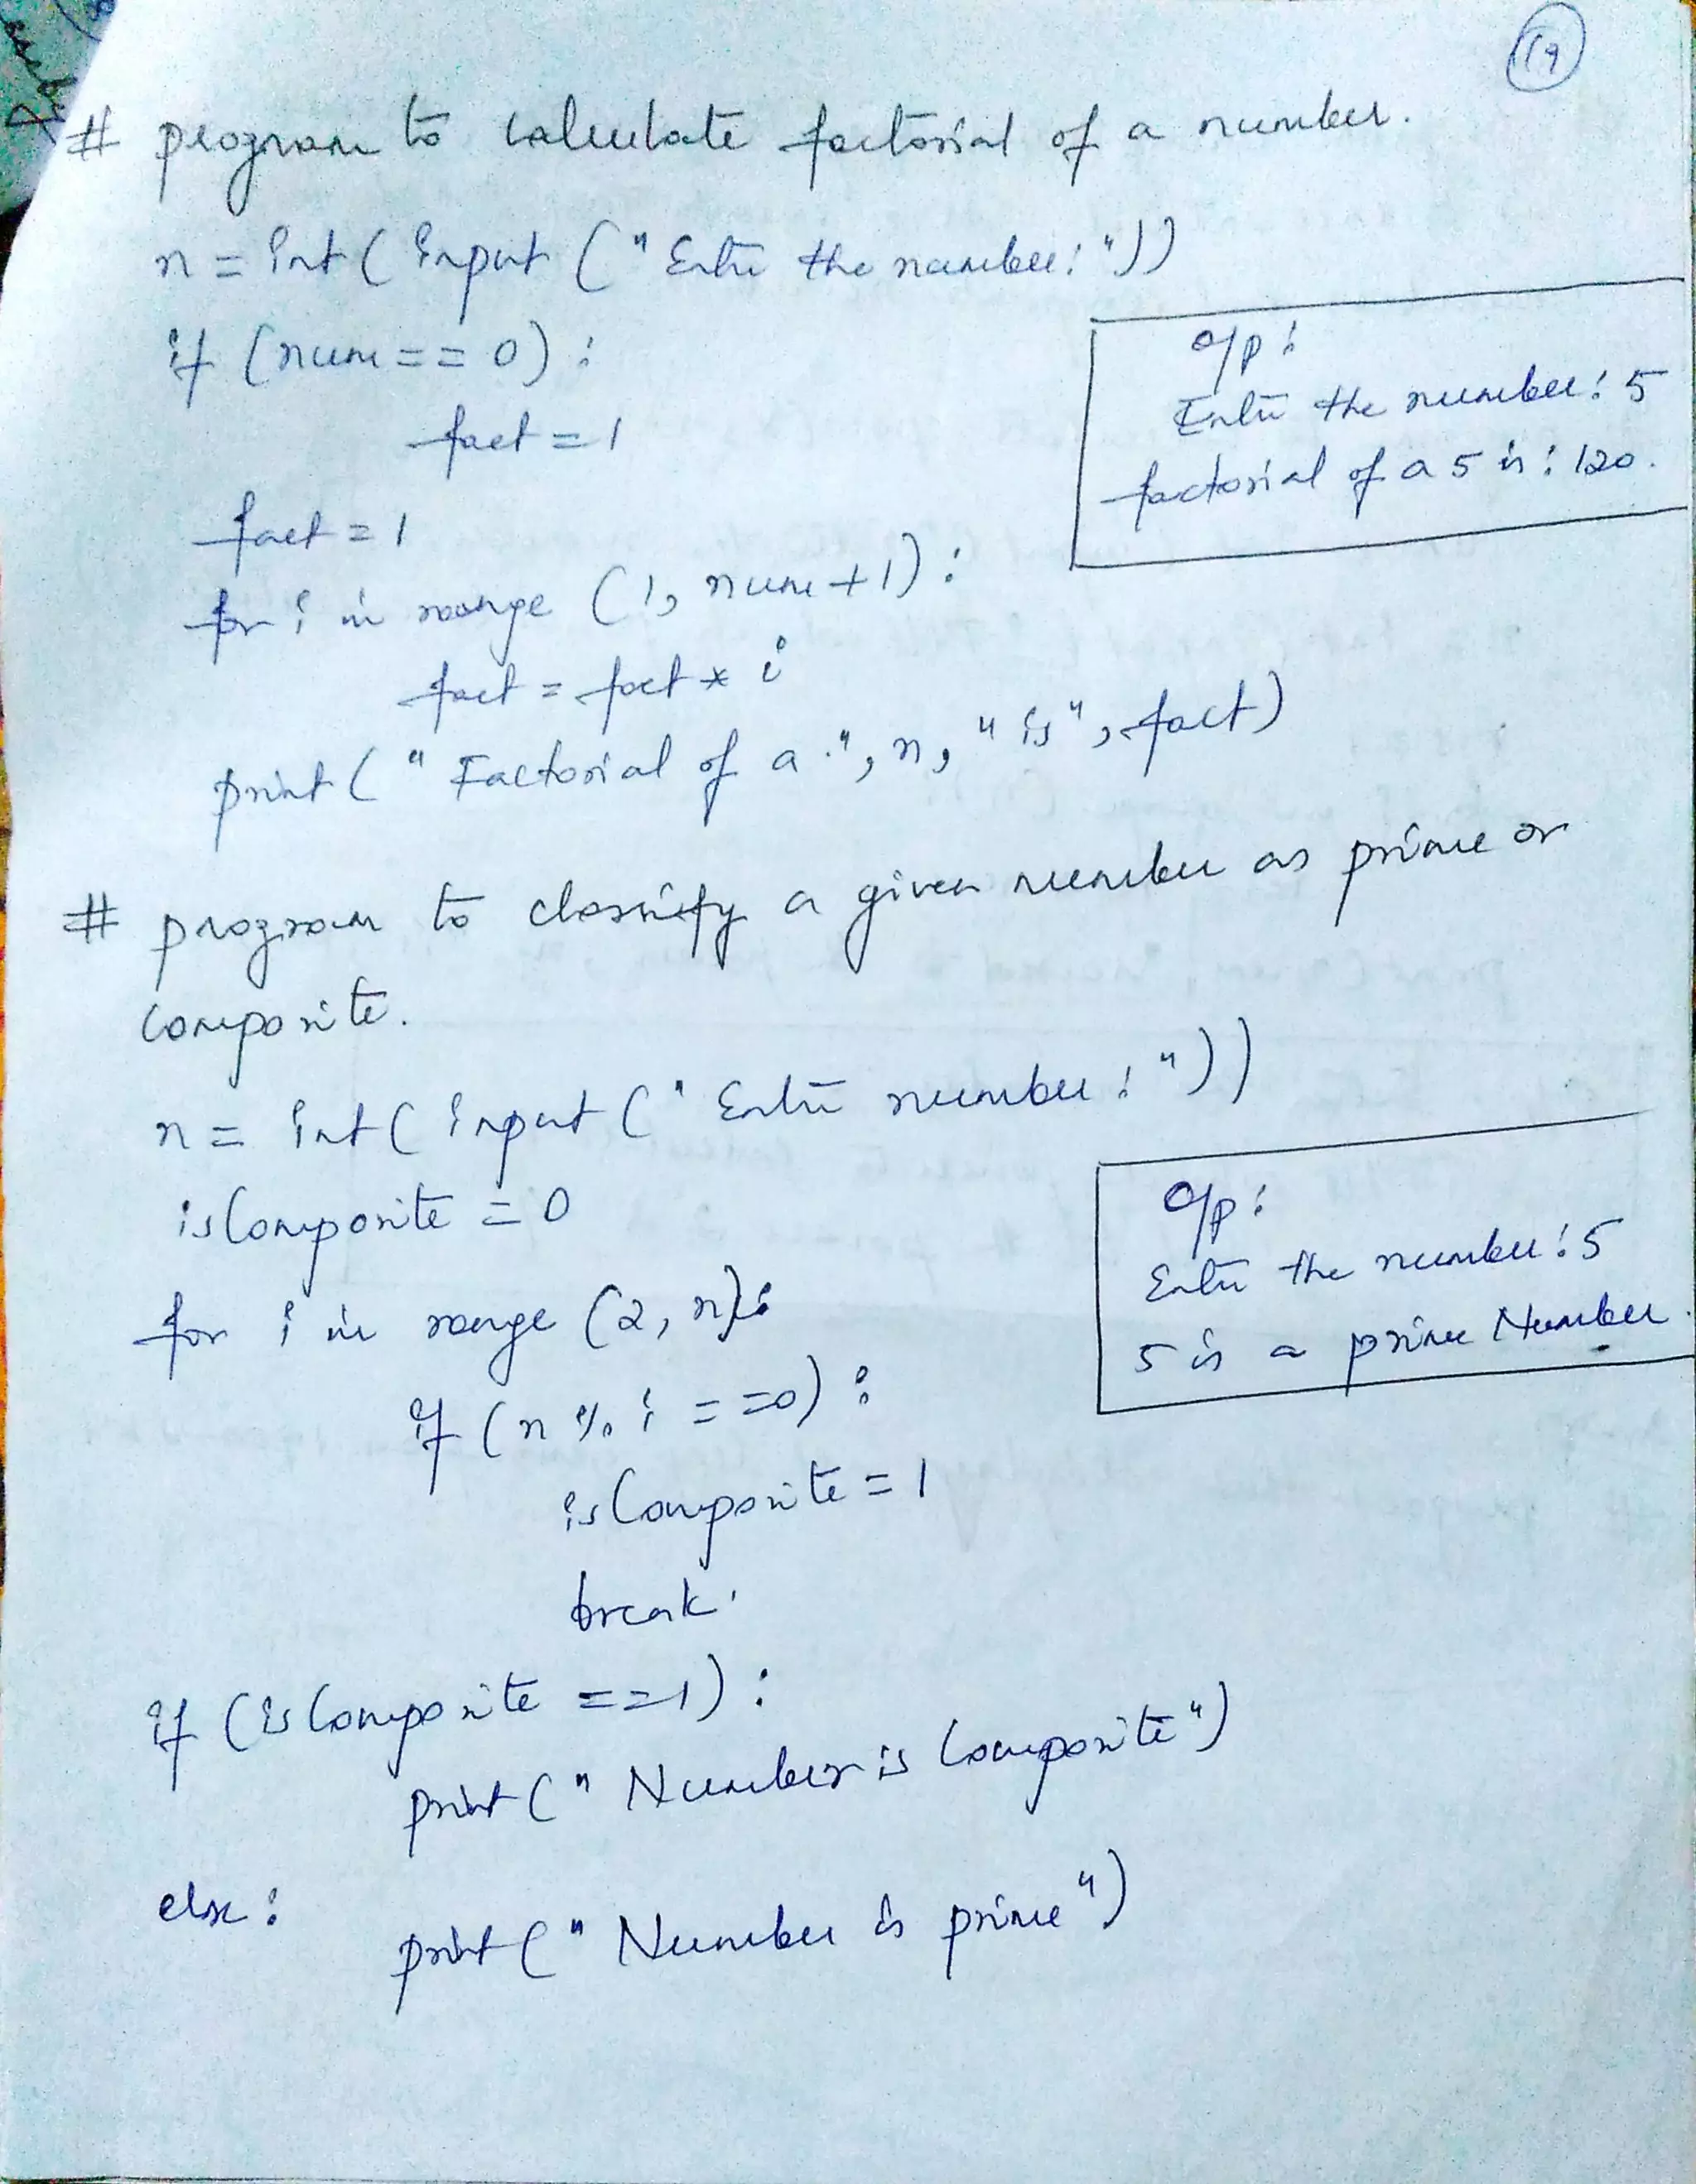 19
# program to calculate factorial of a number.
n = int ( input ( "Enter the number: "))
if (num == 0) :
fact = 1
fact = 1
for i in range (1, num+1) :
fact = fact * i
print ( " Factorial of a :", n, " is ", fact)
o/p :
Enter the number: 5
factorial of a 5 is : 120.
# program to classify a given number as prime or
composite.
n = int ( input ( " Enter number : " ))
isComposite = 0
for i in range (2, n):
if (n % i == 0) :
isComposite = 1
break.
if (isComposite == 1) :
print ( " Number is Composite")
else :
print ( " Number is prime ")
o/p :
Enter the number : 5
5 is a prime Number.